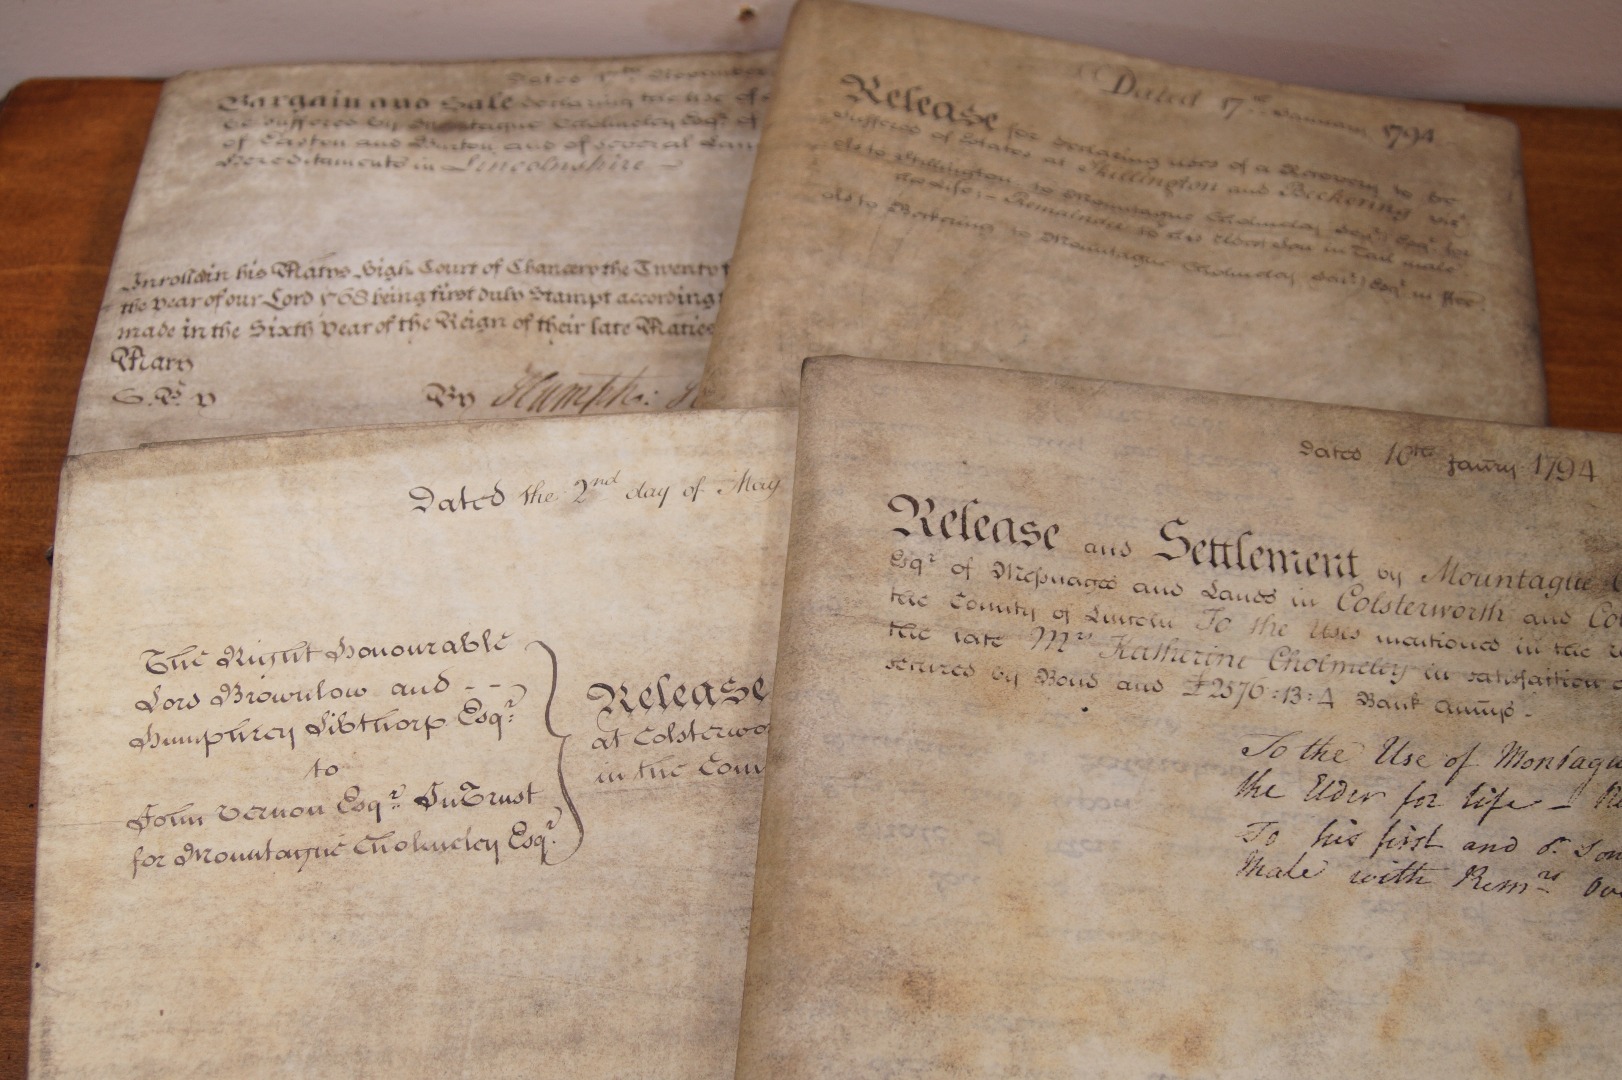 Dated
Bargain and Sale declaring the use of
be suffered by Mountague Cholmeley Esqr. of
of Easton and Burton and of several Lan
Hereditaments in Lincolnshire
Inroll in his Maties High Court of Chancery the Twenty
the year of our Lord 1768 being first duly Stampt according
made in the Sixth year of the Reign of their late Maties
Mary
By Humph:
Dated 17th January 1794
Release for declaring uses of a Recovery to be
suffered of Estates at Skillington and Bickering viz
As to Skillington to Mountague Cholmeley Senr. Esqr. for
Remainder to his Son in Tail male
As to Bickering to Mountague Cholmeley Esqr. in Fee
Dated the 2nd day of May
The Right Honourable
Lord Brownlow and - -
Humphrey Sibthorp Esqr.
to
John Vernon Esqr. In Trust
for Mountague Cholmeley Esqr.
Release
at Colsterwo
in the Coun
Dated 10th Janry 1794
Release and Settlement by Mountague
Esqr of Messuages and Lands in Colsterworth and
the County of Lincoln To the Uses mentioned in the
the late Mrs Katherine Cholmeley in satisfaction
secured by Bond and £2376:13:4 Bank Annys.
To the Use of Montagu
the Elder for life –
To his first and or Son
Male with Remrs